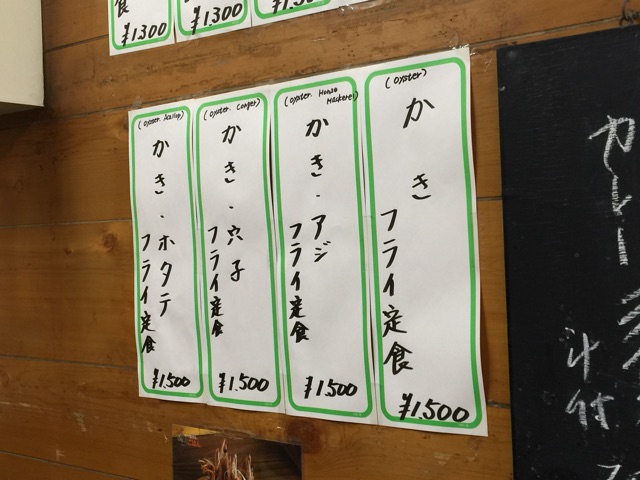 食
¥1300
¥1300
¥1,500
(oyster)
かき
フライ定食
¥1.500
(oyster. Horse Mackerel)
かき・アジ
フライ定食
¥1.500
(oyster. Conger)
かき・穴子
フライ定食
¥1.500
(oyster. Scallop)
かき・ホタテ
フライ定食
¥1.500
汁付